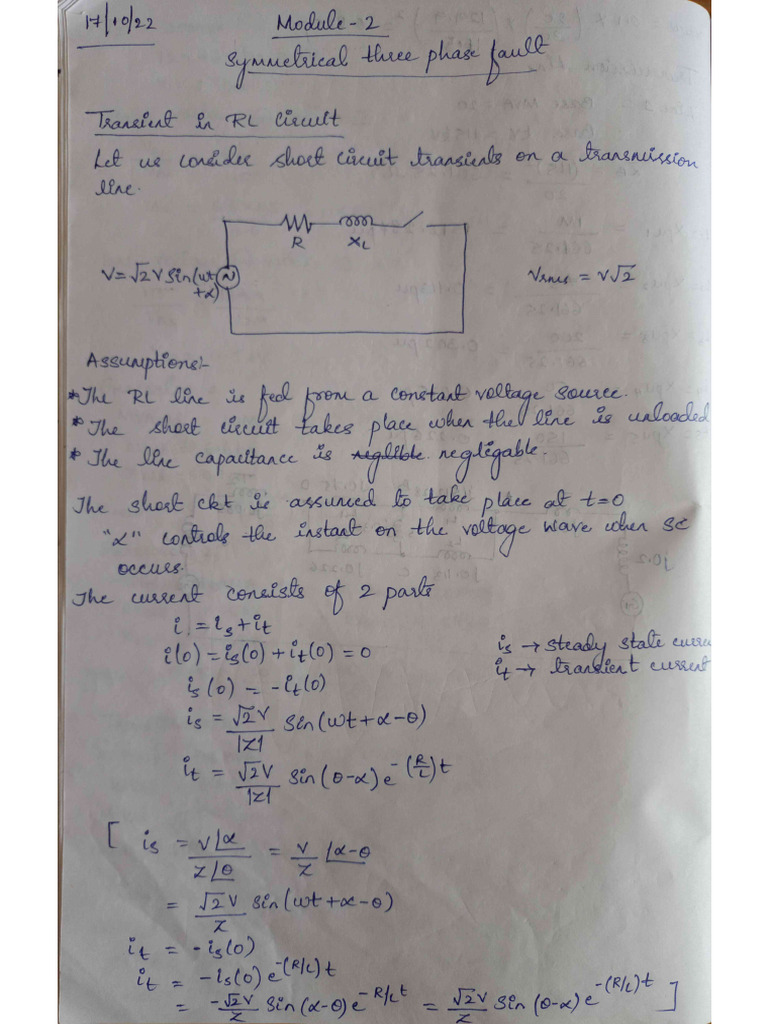 17/10/22
Module-2
Symmetrical three phase fault
Transient in RL Circuit
Let us consider short circuit transients on a transmission
line.
R
XL
V=√2 V sin(wt
+α)
Vrms = V√2
Assumptions:-
* The RL line is fed from a constant voltage source.
* The short circuit takes place when the line is unloaded
* The line capacitance is neglible. negligable.
The short ckt is assumed to take place at t=0
"α" controls the instant on the voltage wave when SC
occurs.
The current consists of 2 parts
i = is + it
i(0) = is(0) + it(0) = 0
is → steady state curre
it → transient current
is(0) = -it(0)
is = √2V/|Z| sin(wt+α-θ)
it = √2V/|Z| sin(θ-α) e^-(R/L)t
[ is = V∠α/Z∠θ = V/Z ∠α-θ
= √2V/Z sin(wt+α-θ)
it = -is(0)
it = -is(0) e^-(R/L)t
= -√2V/Z sin(α-θ) e^-R/L t = √2V/Z sin(θ-α) e^-(R/L)t ]